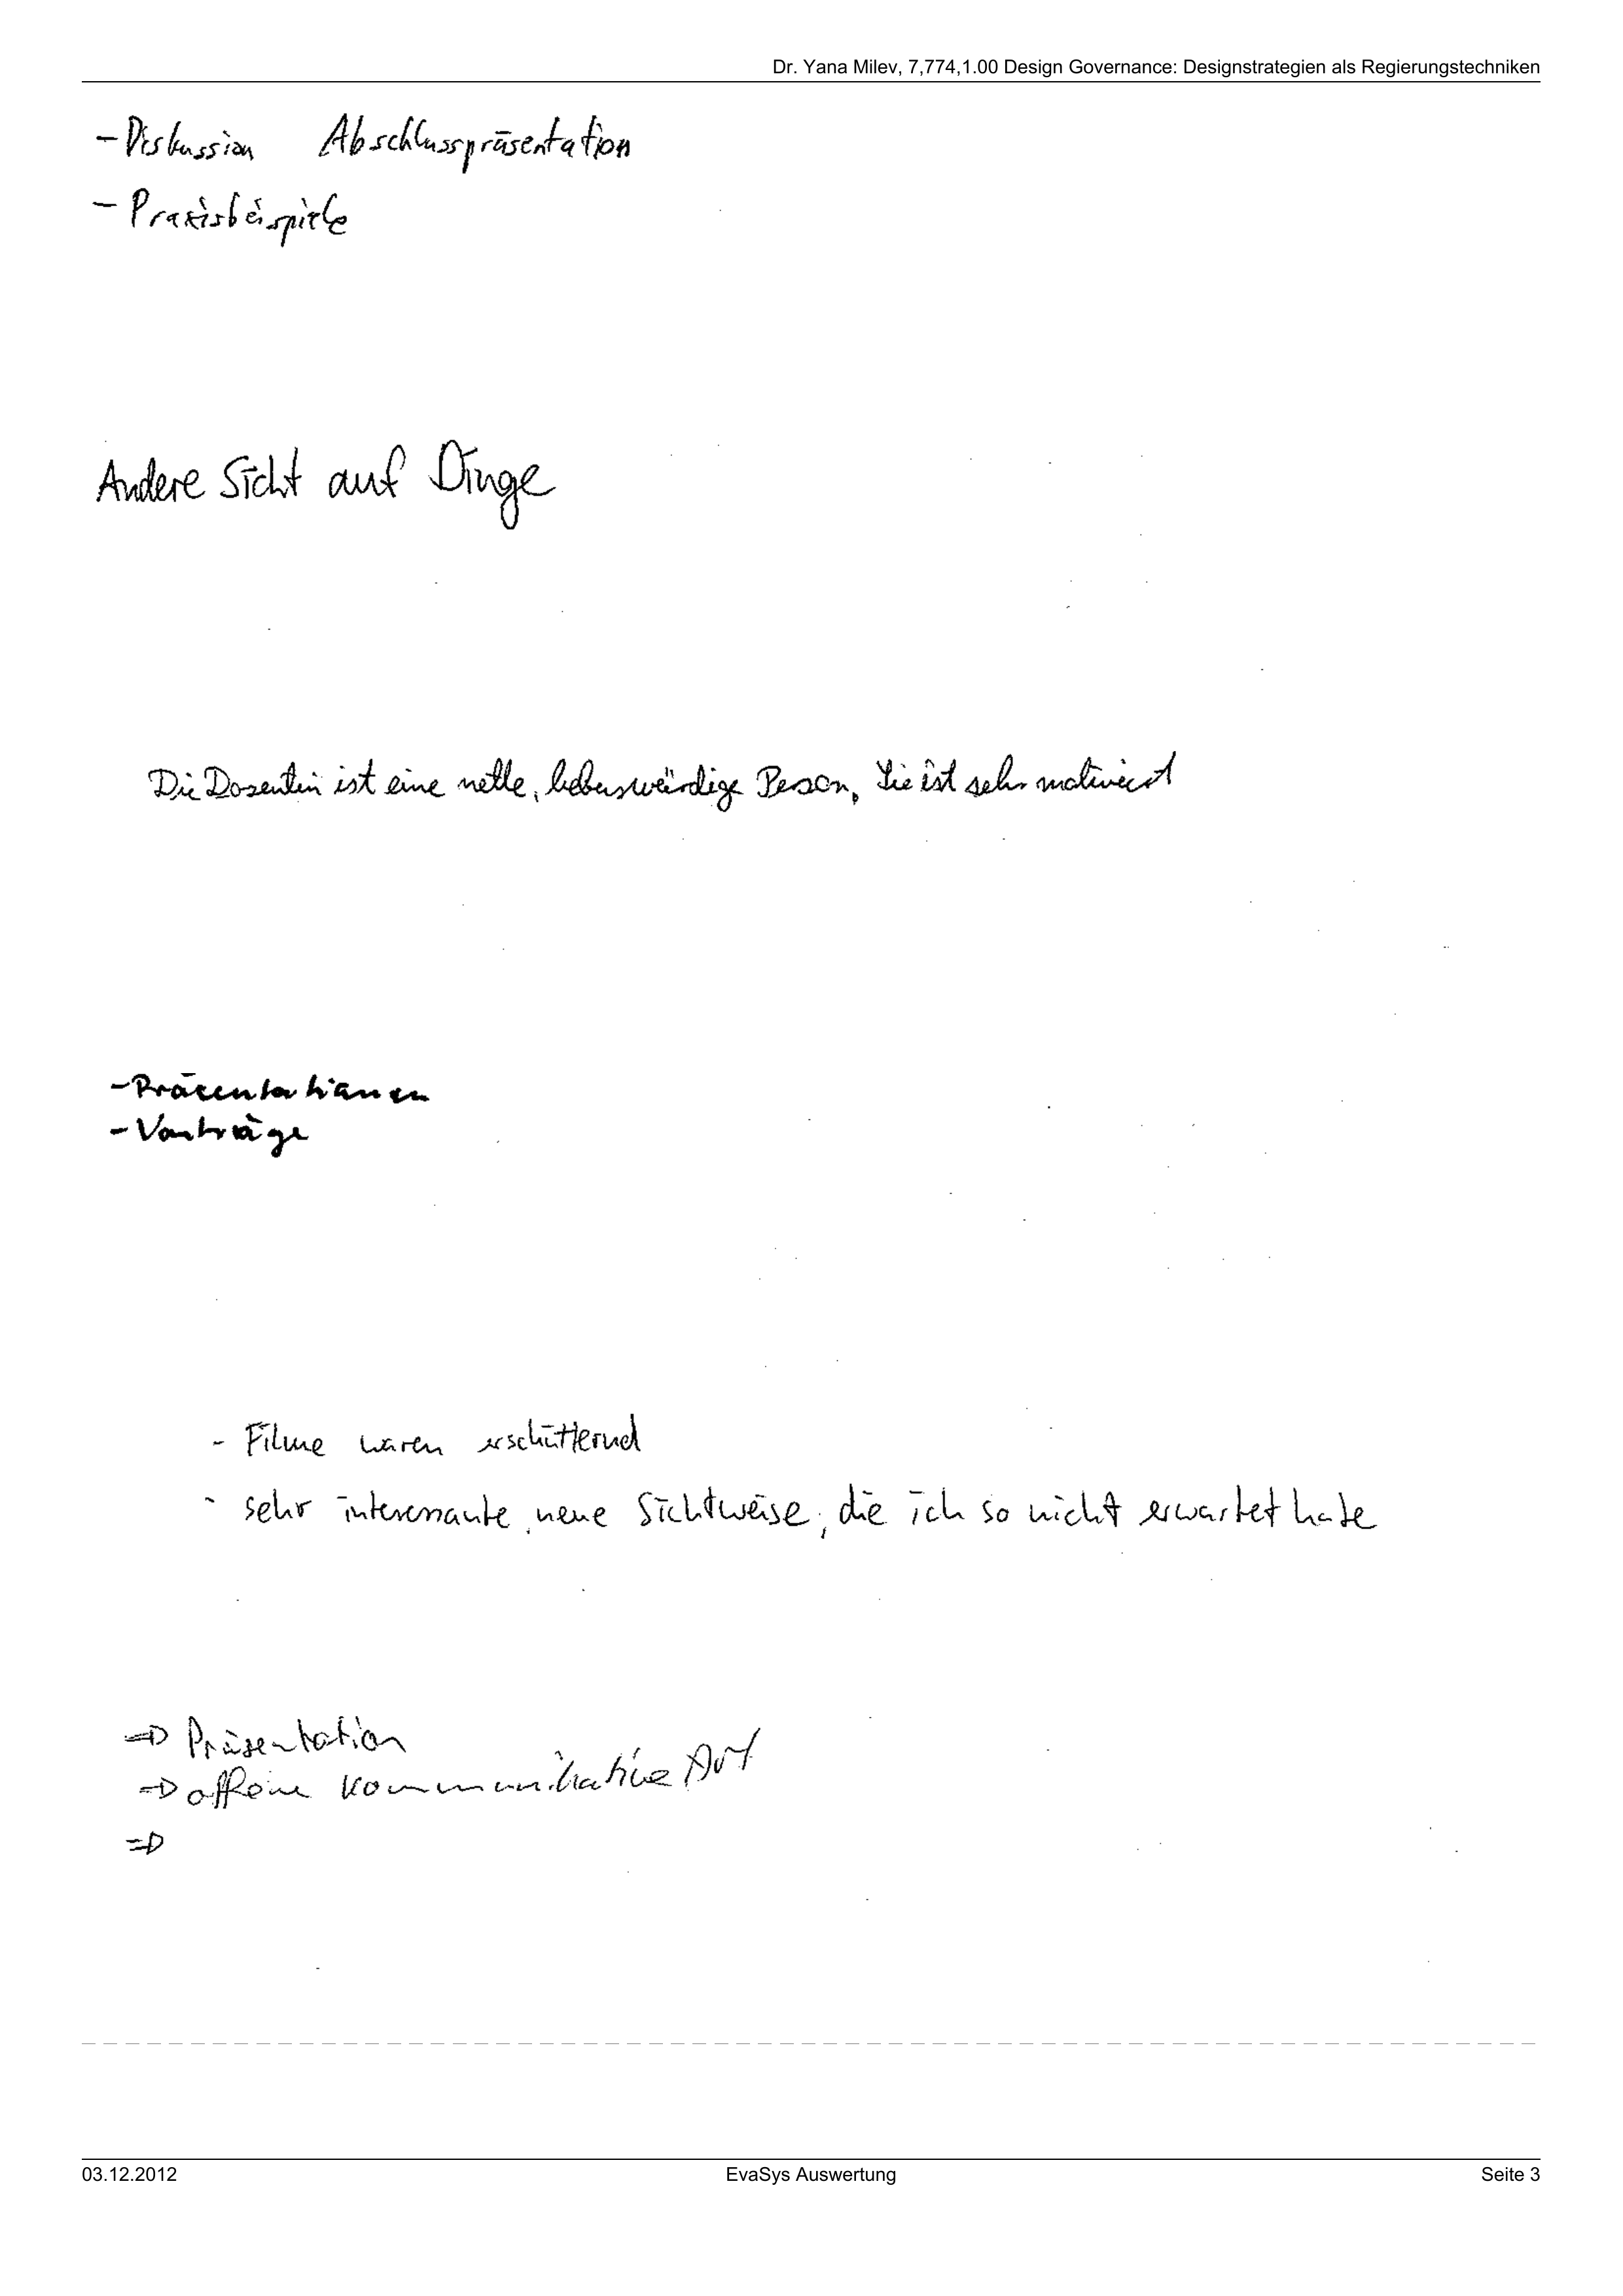 Dr. Yana Milev, 7,774,1.00 Design Governance: Designstrategien als Regierungstechniken
- Diskussion Abschlusspräsentation
- Praxisbeispiele
Andere Sicht auf Dinge
Die Dozentin ist eine nette, liebenswürdige Person, Sie ist sehr motiviert
- Präsentationen
- Vorträge
- Filme waren erschütternd
- sehr interessante, neue Sichtweise, die ich so nicht erwartet habe
⇒ Präsentation
⇒ offene kommunikative Art
⇒
03.12.2012 EvaSys Auswertung Seite 3